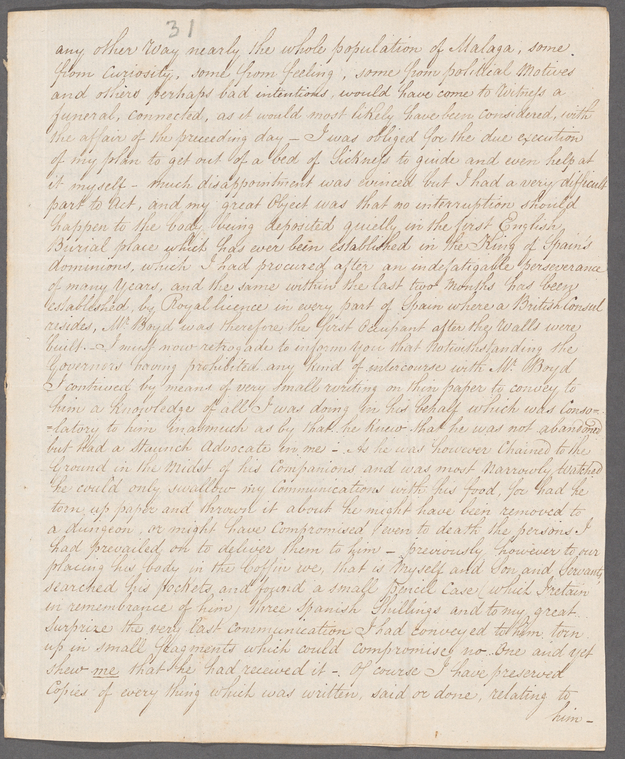 31
any other way nearly the whole population of Malaga, some
from curiosity, some from feeling, some from political Motives
and others perhaps bad intentions, would have come to witness a
funeral, connected, as it would most likely have been considered, with
the affair of the preceding day – I was obliged for the due execution
of my plan to get out of a bed of Sickness to guide and even help at
it myself – much disappointment was evinced but I had a very difficult
part to Act, and my great Object was that no interruption should
happen to the body being deposited quietly in the first English
Burial place which has ever been established in the King of Spain's
dominions, which I had procured after an indefatigable perseverance
of many Years, and the same within the last two Months has been
established, by Royal licence in every part of Spain where a British Consul
resides, Mr Boyd was therefore the first Occupant after the Walls were
built. – I must now retrograde to inform you that Notwithstanding the
Governors having prohibited any kind of intercourse with Mr Boyd
I continued by means of very small writing on thin paper to convey to
him a knowledge of all I was doing in his behalf which was Conso-
-latory to him inasmuch as by that he knew that he was not abandoned
but had a Staunch Advocate in me – As he was however Chained to the
Ground in the Midst of his Companions and was most Narrowly Watched
he could only swallow my Communications with his food, for had he
torn up paper and thrown it about he might have been removed to
a dungeon, or might have Compromised even to death the persons I
had prevailed on to deliver them to him – previously however to our
placing his body in the Coffin we, that is Myself and Son and Servant,
searched his pockets, and found a small Pencil Case, which I retain
in remembrance of him, three Spanish Shillings and to my great
surprize the very last communication I had conveyed to him, torn
up in small fragments which could compromise no one and yet
shew me that he had received it –. Of course I have preserved
Copies of every thing which was written, said or done, relating to
him –